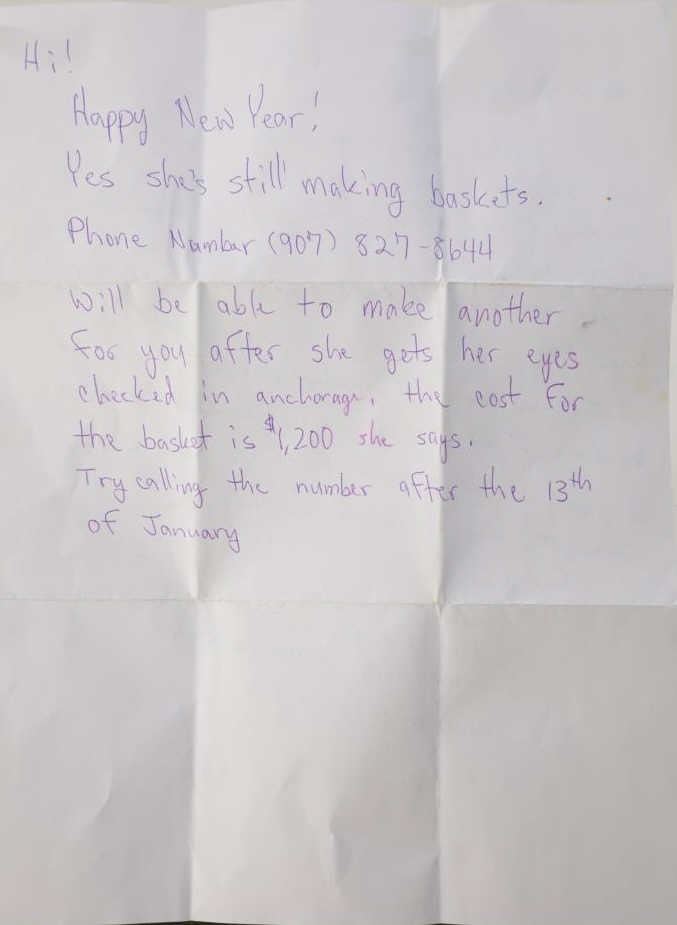 Hi!
Happy New Year!
Yes she's still making baskets.
Phone Number (907) 827-8644
Will be able to make another
for you after she gets her eyes
checked in anchorage, the cost for
the basket is $1,200 she says.
Try calling the number after the 13th
of January